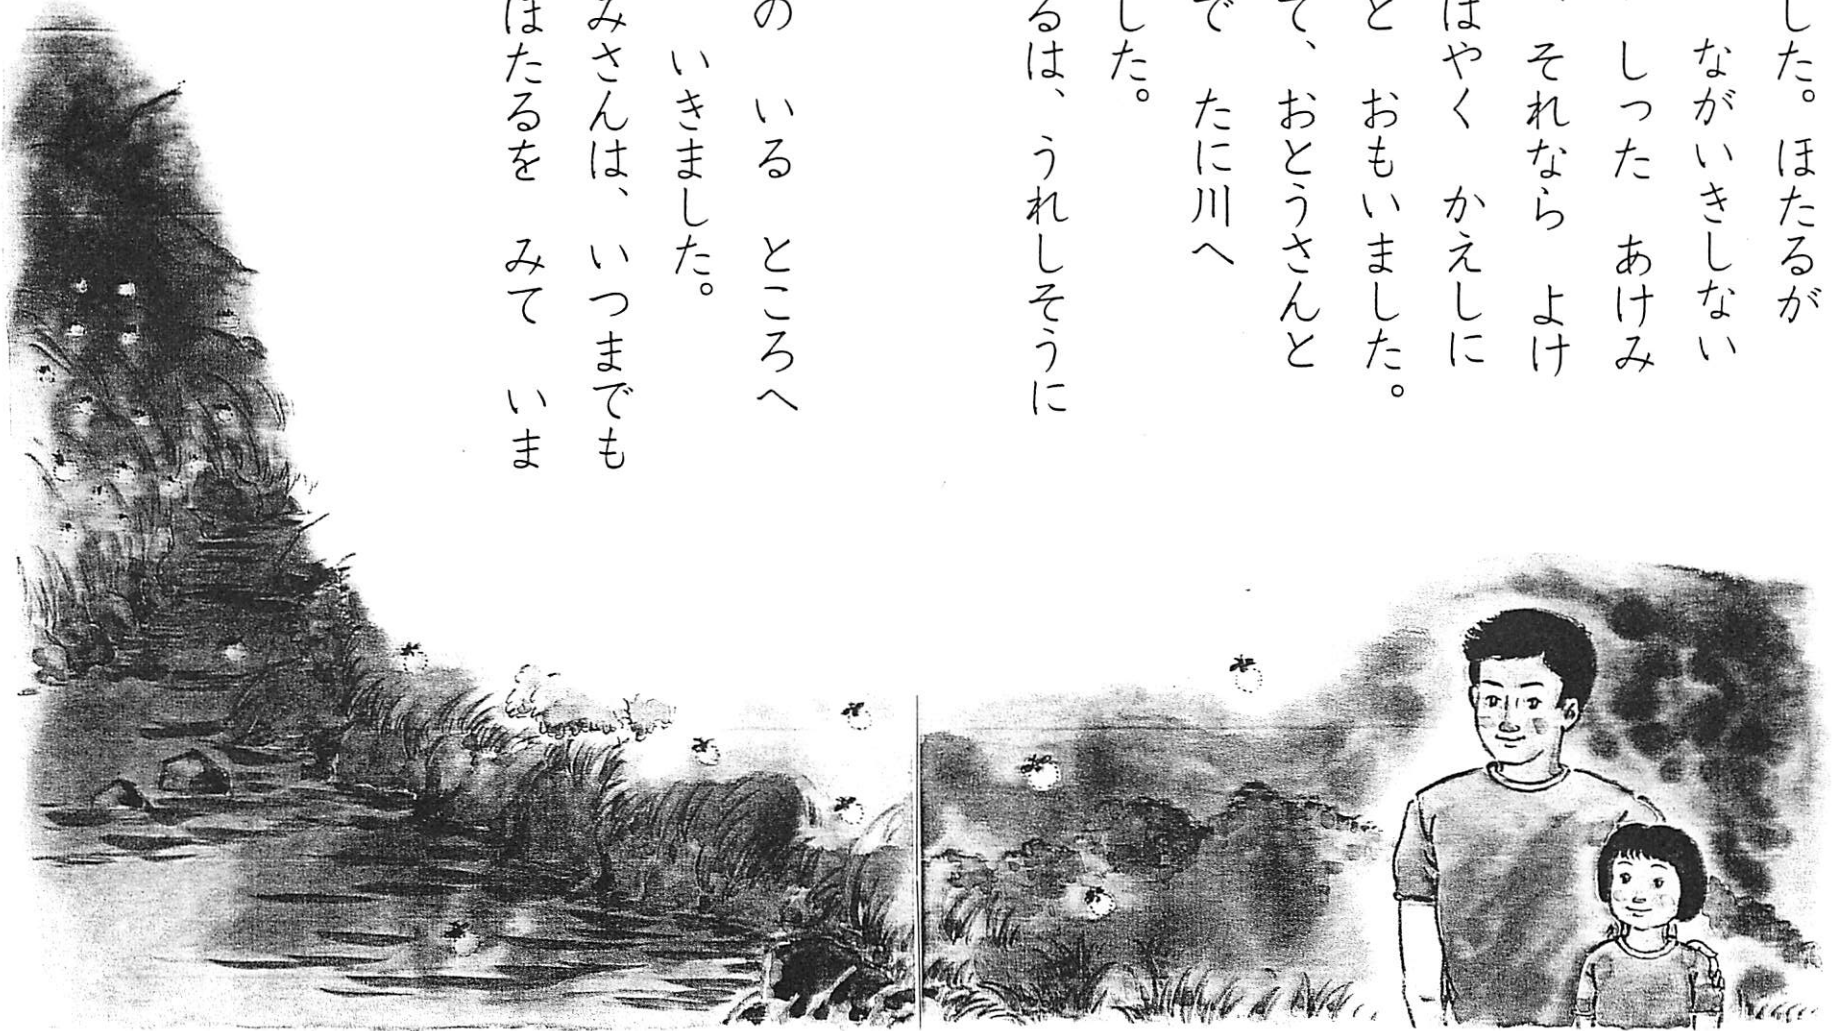 した。ほたるが
ながいきしない
しった　あけみ
それなら　よけ
はやく　かえしに
と　おもいました。
て、おとうさんと
で　たに川へ
した。
るは、うれしそうに
の　いる　ところへ
いきました。
みさんは、いつまでも
ほたるを　みて　いま